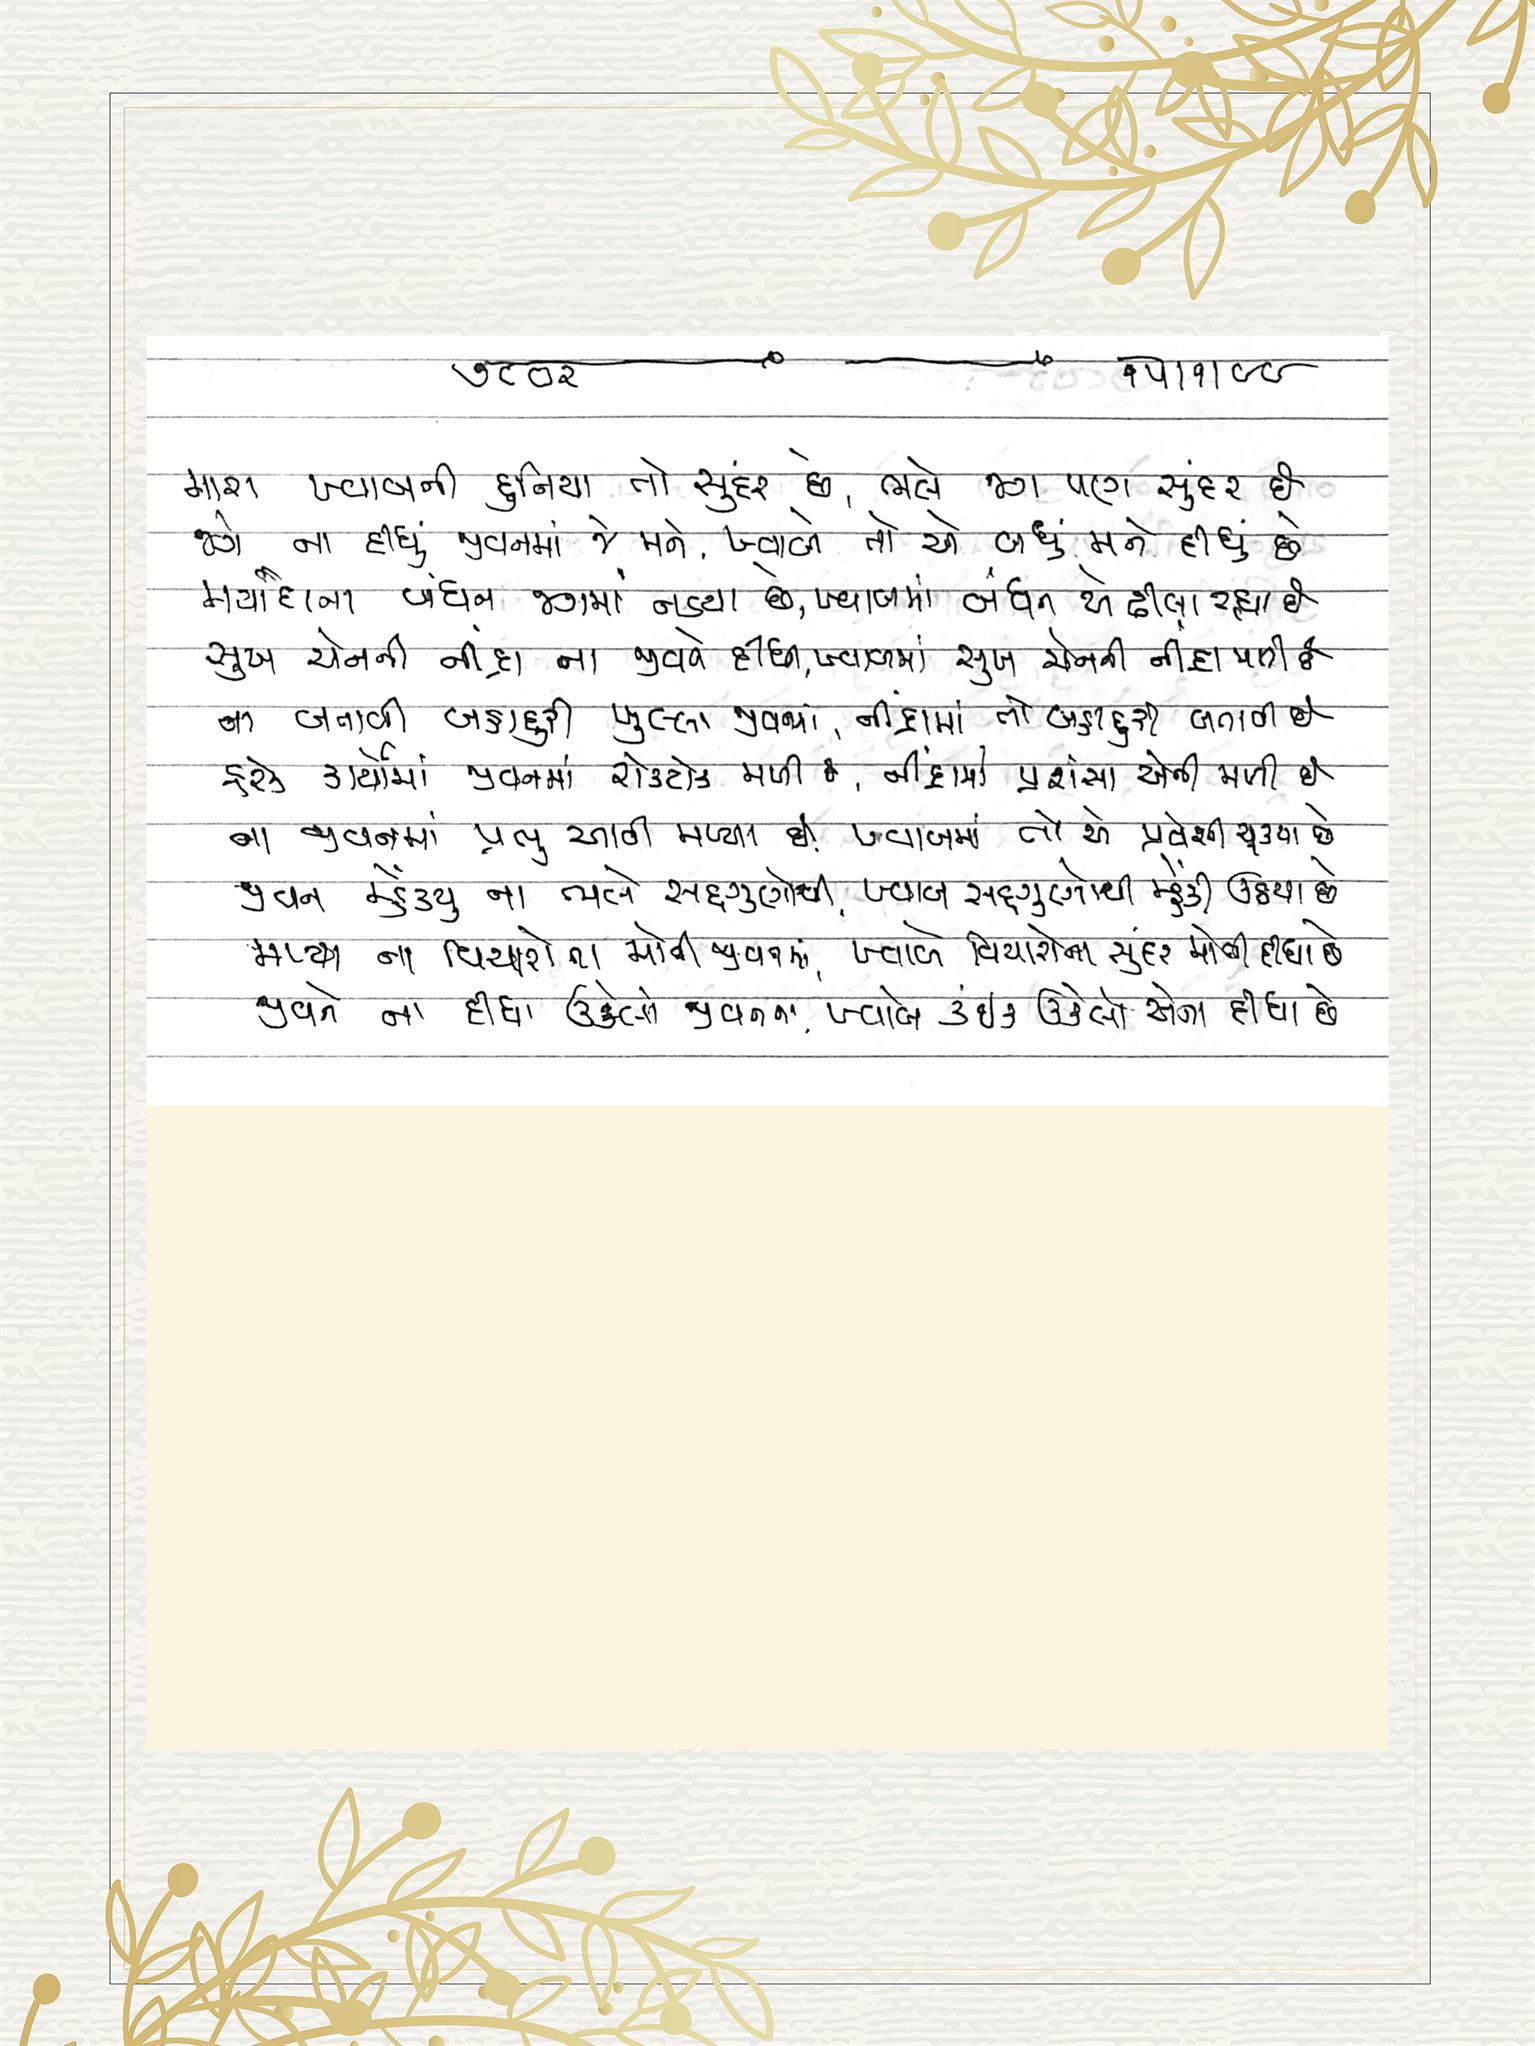 ૭૮૦૨ ૧૫।૧।૯૯
મારા ખ્વાબની દુનિયા તો સુંદર છે, ભલે જગ પણ સુંદર છે
જગે ના દીધું જીવનમાં જે મને, ખ્વાબે તો એ બધું મને દીધું છે
મર્યાદાના બંધન જગમાં નડયા છે, ખ્વાબમાં બંધન એ ઢીલા રહ્યા છે
સુખ ચેનની નીંદ્રા ના જીવને દીધી, ખ્વાબમાં સુખ ચેનની નીંદ્રા મળી છે
ના બતાવી બહાદુરી ખુલ્લા જીવનમાં, નીંદ્રામાં તો બહાદુરી બતાવી છે
દરેક કાર્યોમાં જીવનમાં રોકટોક મળી છે, નીંદ્રામાં પ્રશંસા એની મળી છે
ના જીવનમાં પ્રભુ આવી મળ્યા છે, ખ્વાબમાં તો એ પ્રવેશી ચૂક્યા છે
જીવન મ્હેંક્યુ ના ભલે સદ્દગુણોથી, ખ્વાબ સદ્દગુણોથી મ્હેંકી ઉઠયા છે
મળ્યા ના વિચારોના મોતી જીવનમાં, ખ્વાબે વિચારોના સુંદર મોતી દીધા છે
જીવને ના દીધા ઉકેલો જીવનના, ખ્વાબે કંઇક ઉકેલો એના દીધા છે